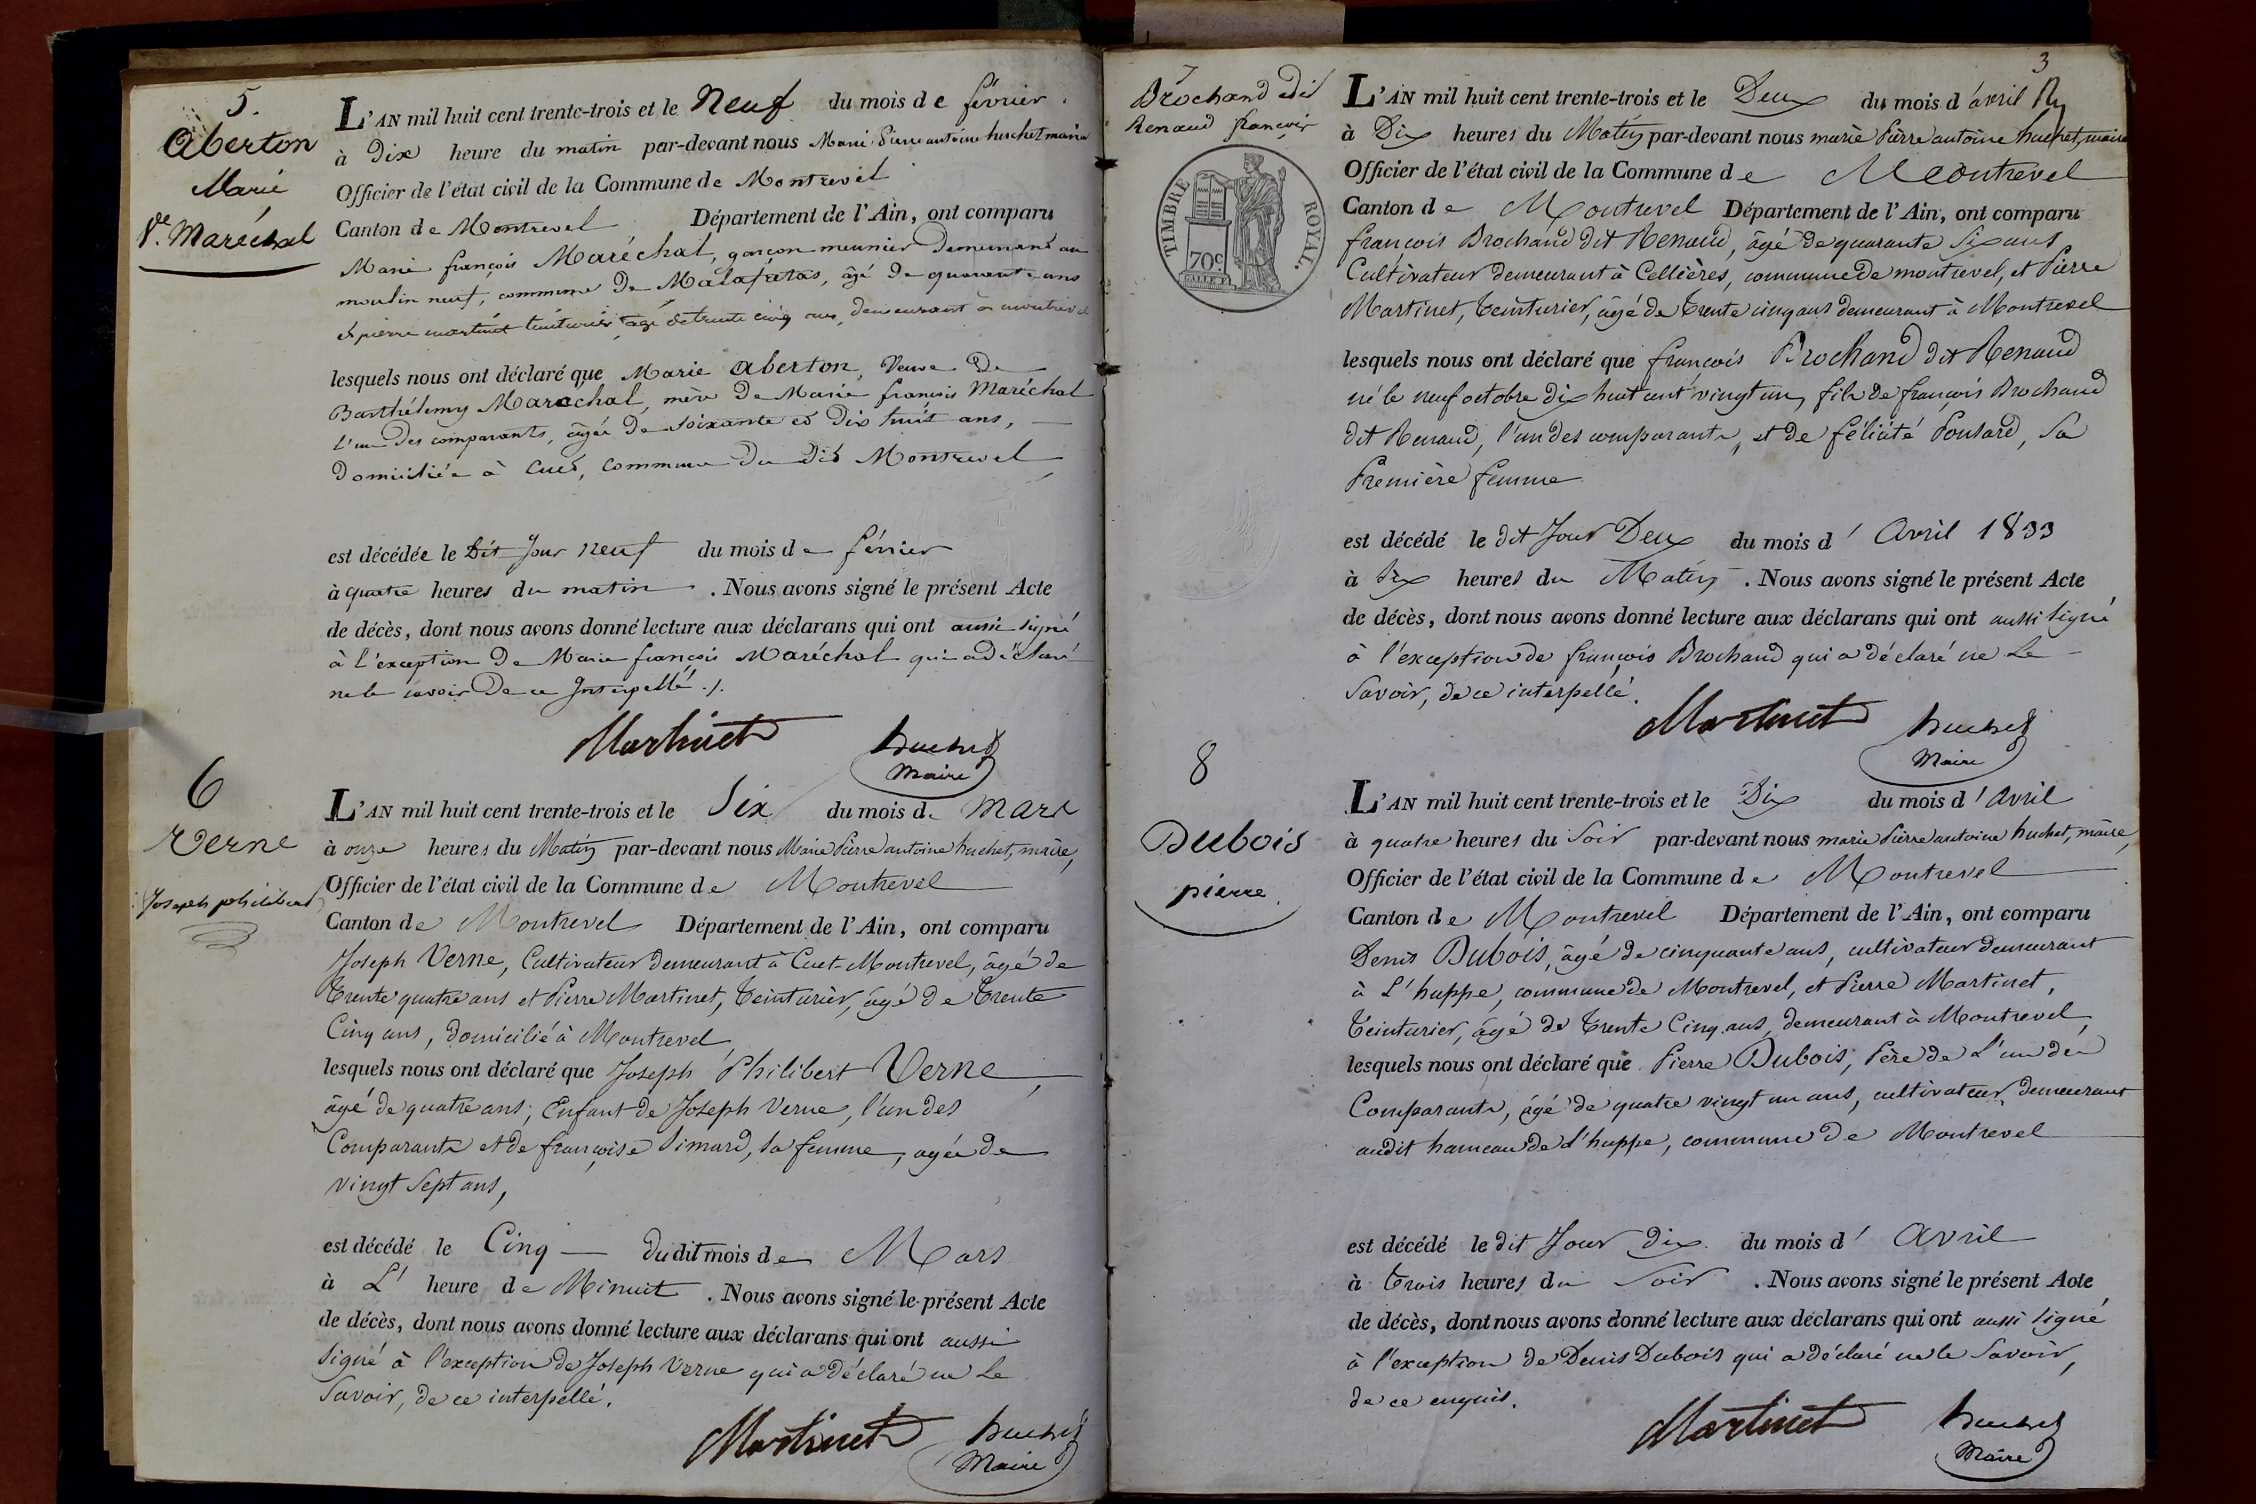 5.
Aberton
Marie
Ve. Maréchal
L'AN mil huit cent trente-trois et le Neuf du mois de février.
à Dix heure du matin par-devant nous Marie Pierre antoine huchet maire
Officier de l'état civil de la Commune de Montrevel
Canton de Montrevel Département de l'Ain, ont comparu
Marie françois Maréchal, garçon meunier demeurant au
moulin neuf, commune De Malafretas, âgé De quarante ans
et pierre martinet teinturier, âgé de trente cinq ans, demeurant à montrevel
lesquels nous ont déclaré que Marie Aberton, Veuve De
Barthélemy Marechal, mère De Marie françois Maréchal
l'un Des comparants, âgée De soixante et Dix huit ans,
Domiciliée à Cuet, Commune Du Dit Montrevel
est décédée le Dit Jour neuf du mois de février
à quatre heures du matin. Nous avons signé le présent Acte
de décès, dont nous avons donné lecture aux déclarans qui ont aussi signé
à l'exception De Marie françois Maréchal qui a déclaré
ne le savoir De ce Interpellé ./.
Martinet huchet
Maire
6
Verne
Joseph philibert
L'AN mil huit cent trente-trois et le Six du mois de Mars
à onze heures du Matin par-devant nous Marie Pierre antoine huchet, maire,
Officier de l'état civil de la Commune de Montrevel
Canton de Montrevel Département de l'Ain, ont comparu
Joseph Verne, Cultivateur demeurant à Cuet-Montrevel, âgé de
trente quatre ans et Pierre Martinet, teinturier, âgé de trente
Cinq ans, domicilié à Montrevel
lesquels nous ont déclaré que Joseph Philibert Verne,
âgé de quatre ans, Enfant de Joseph Verne, l'un des
Comparants et de françoise Simard, sa femme, agée de
vingt sept ans,
est décédé le Cinq dudit mois de Mars
à L' heure de Minuit. Nous avons signé le présent Acte
de décès, dont nous avons donné lecture aux déclarans qui ont aussi
signé à l'exception de Joseph Verne qui a déclaré ne le
savoir, de ce interpellé.
Martinet huchet
Maire
3
7
Brochand dit
Renaud françois
TIMBRE ROYAL.
70c
L'AN mil huit cent trente-trois et le Deux du mois d'avril
à Dix heures du Matin par-devant nous marie Pierre antoine huchet, maire
Officier de l'état civil de la Commune de Montrevel
Canton de Montrevel Département de l'Ain, ont comparu
françois Brochand dit Renaud, âgé de quarante six ans
Cultivateur demeurant à Cellières, commune de montrevel, et Pierre
Martinet, teinturier, âgé de trente cinq ans demeurant à Montrevel
lesquels nous ont déclaré que françois Brochand dit Renaud
né le neuf octobre dix huit cent vingt un, fils de françois Brochand
dit Renaud, l'un des comparants, et de félicité Ponsard, sa
Première femme
est décédé le dit Jour Deux du mois d'Avril 1833
à Six heures du Matin. Nous avons signé le présent Acte
de décès, dont nous avons donné lecture aux déclarans qui ont aussi signé
à l'exception de françois Brochand qui a déclaré ne le
Savoir, de ce interpellé.
Martinet huchet
Maire
8
Dubois
pierre
L'AN mil huit cent trente-trois et le Dix du mois d'Avril
à quatre heures du Soir par-devant nous marie Pierre antoine huchet, maire,
Officier de l'état civil de la Commune de Montrevel
Canton de Montrevel Département de l'Ain, ont comparu
Denis Dubois, âgé de cinquante ans, cultivateur demeurant
à L'huppe, commune de Montrevel, et Pierre Martinet,
teinturier, âgé de trente Cinq ans, demeurant à Montrevel,
lesquels nous ont déclaré que Pierre Dubois, Père de L'un des
Comparants, âgé de quatre vingt un ans, cultivateur, demeurant
audit hameau de l'huppe, commune de Montrevel
est décédé le dit Jour dix du mois d'Avril
à trois heures du Soir. Nous avons signé le présent Acte
de décès, dont nous avons donné lecture aux déclarans qui ont aussi signé
à l'exception de Denis Dubois qui a déclaré ne le Savoir,
de ce enquis.
Martinet huchet
Maire